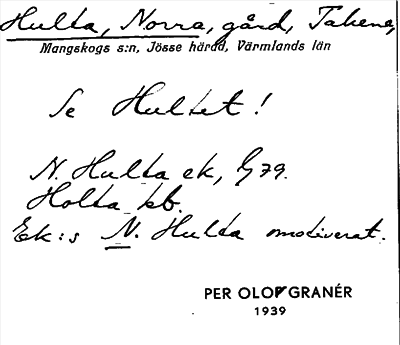 Hulta, Norra, gård, Takene,
Mangskogs s:n, Jösse härad, Värmlands län
Se Hultet!
N. Hulta ek, G79.
Holta kb.
Ek:s N. Hulta omotiverat.
PER OLOF GRANÉR
1939